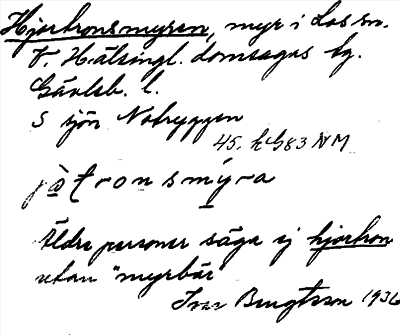 Hjortronsmyren, myr i Los sn.
V. Hälsingl. domsagas tg.
Gävleb. l.
S sjön Notryggen
45. h G83 NM
jò̱tronsmýra
Äldre personer säga ej hjortron
utan "myrbär"
Ivar Bengtsson 1936